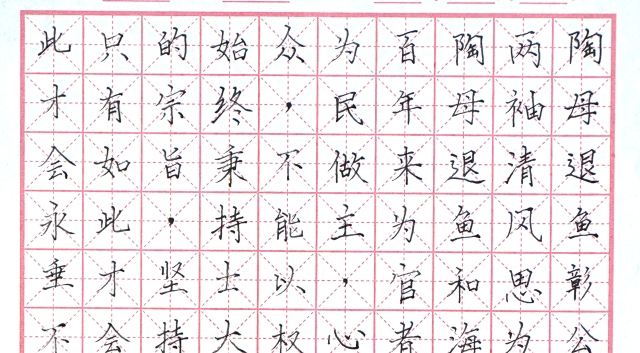 陶母退鱼彰公
两袖清风思为
陶母退鱼和海
百年来为官者
为民做主，心
众，不能以权
始终秉持士大
的宗旨，坚持
只有如此才会
此才会永垂不